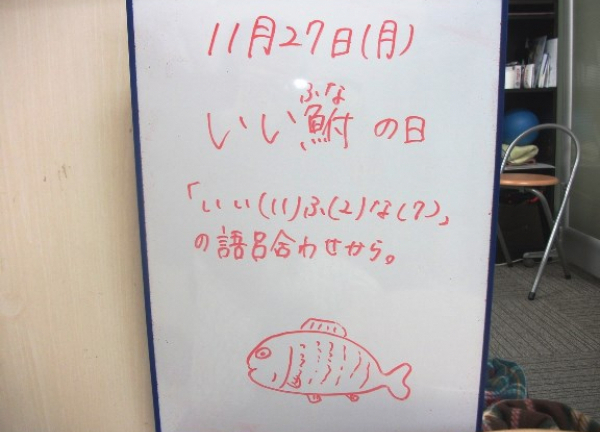 11月27日(月)
ふな
いい鮒の日
「いい(11)ふ(2)な(7)」
の語呂合わせから。